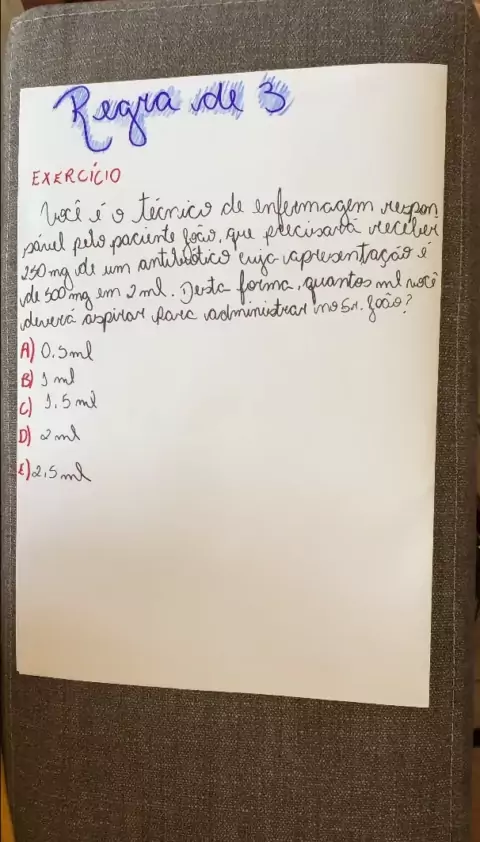 Regra de 3
EXERCÍCIO
Você é o técnico de enfermagem respon
sável pelo paciente João, que precisará receber
250 mg de um antibiótico cuja apresentação é
de 500 mg em 2 ml. Desta forma, quantos ml você
deverá aspirar para administrar no Sr. João?
A) 0.5 ml
B) 1 ml
C) 1.5 ml
D) 2 ml
E) 2,5 ml